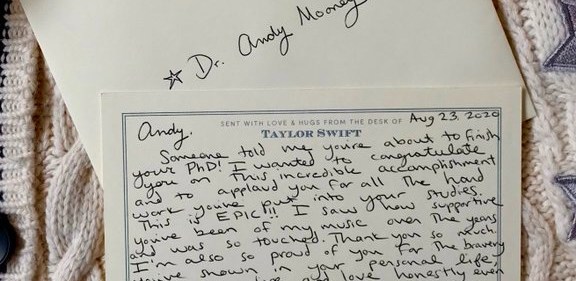 ☆ Dr. Andy Mooney
SENT WITH LOVE & HUGS FROM THE DESK OF
TAYLOR SWIFT
Aug 23, 2020
Andy,
Someone told me you're about to finish
your PhD! I wanted to congratulate
you on this incredible accomplishment
and to applaud you for all the hard
work you've put into your studies.
This is EPIC!! I saw how supportive
you've been of my music over the years
and was so touched. Thank you so much.
I'm also so proud of you for the bravery
you've shown in your personal life,
and love honestly even